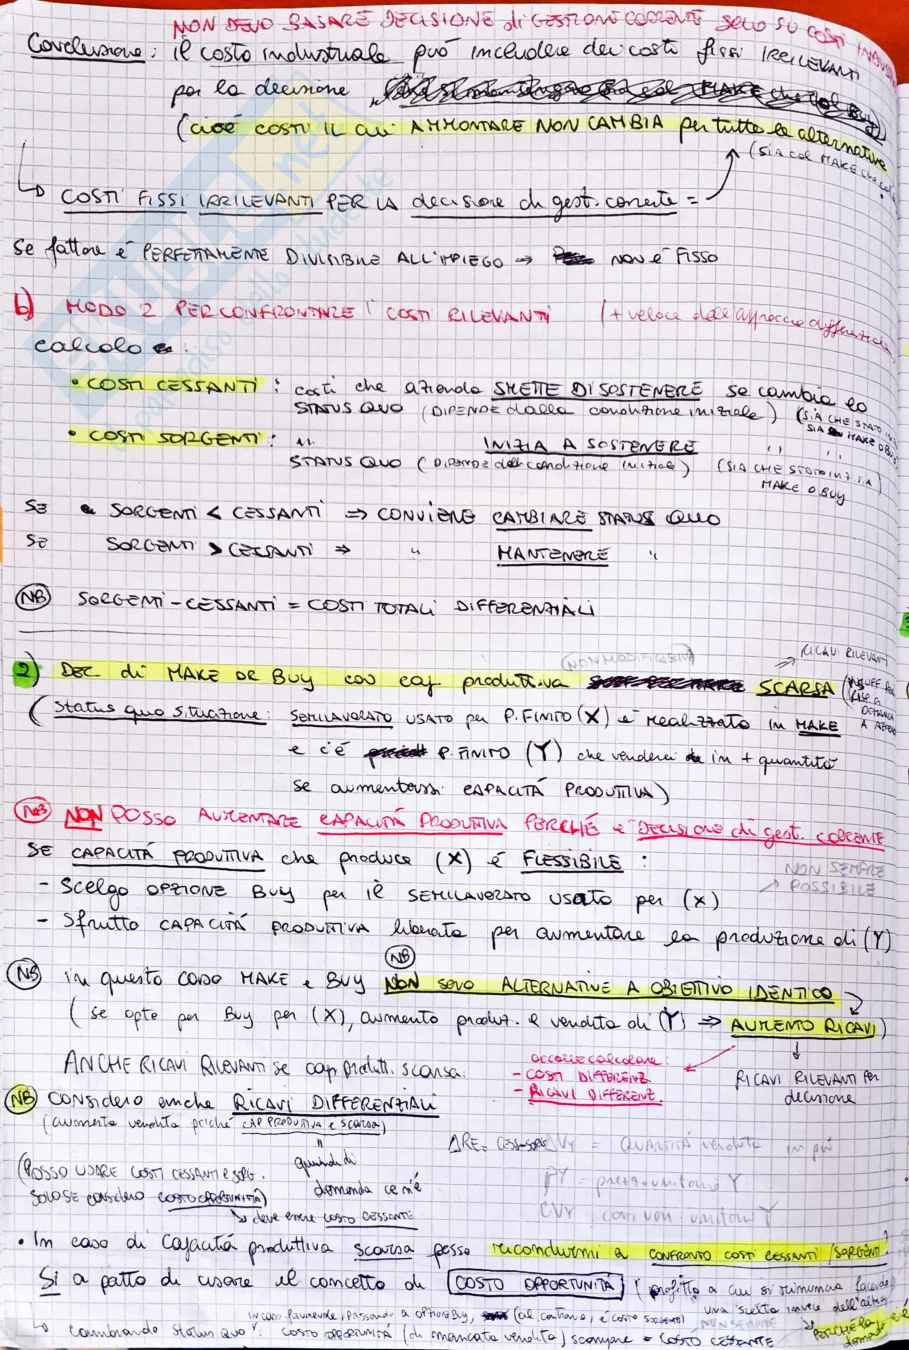 NON DEVO BASARE DECISIONE di GESTIONE CORRENTE solo SU COSTI
Conclusione: il costo industriale può includere dei costi fissi IRRILEVANTI
per la decisione
(cioè COSTI IL cui AMMONTARE NON CAMBIA per tutte le alternative
(SIA COL MAKE che
COSTI FISSI IRRILEVANTI PER LA decisione di gest. corrente =
Se fattore è PERFETTAMENTE DIVISIBILE ALL'IMPIEGO ⇒ NON è FISSO
b) MODO 2 PER CONFRONTARE I COSTI RILEVANTI (+ veloce dell'approccio
calcolo :
• COSTI CESSANTI : costi che azienda SMETTE DI SOSTENERE se cambia lo
STATUS QUO (DIPENDE dalla condizione iniziale) (SIA CHE
SIA MAKE O BUY)
• COSTI SORGENTI : " INIZIA A SOSTENERE " "
STATUS QUO (Dipende dalla condizione iniziale) (SIA CHE
MAKE O BUY
SE SORGENTI < CESSANTI ⇒ CONVIENE CAMBIARE STATUS QUO
SE SORGENTI > CESSANTI ⇒ " MANTENERE "
NB SORGENTI - CESSANTI = COSTI TOTALI DIFFERENZIALI
RICAVI RILEVANTI
2) DEC di MAKE OR BUY con cap. produttiva SCARSA
(Status quo situazione: SEMILAVORATO USATO per P. FINITO (X) è realizzato in MAKE
e c'è P. FINITO (Y) che venderei in + quantità
se aumentassi CAPACITÀ PRODUTTIVA)
NB NON POSSO AUMENTARE CAPACITÀ PRODUTTIVA PERCHÉ è DECISIONE di gest. CORRENTE
SE CAPACITÀ PRODUTTIVA che produce (X) è FLESSIBILE :
NON SEMPRE
POSSIBILE
- Scelgo OPZIONE BUY per il SEMILAVORATO usato per (X)
- Sfrutto CAPACITÀ PRODUTTIVA liberata per aumentare la produzione di (Y)
NB
NB in questo caso MAKE e BUY NON sono ALTERNATIVE A OBIETTIVO IDENTICO
( se opto per Buy per (X), aumento produz. e vendita di (Y) ⇒ AUMENTO RICAVI)
ANCHE RICAVI RILEVANTI se cap. produtt. scarsa.
occorre calcolare:
- COSTI DIFFERENZ
- RICAVI DIFFERENZ.
RICAVI RILEVANTI per
decisione
NB CONSIDERO anche RICAVI DIFFERENZIALI
(aumento vendita perché CAP PRODUTTIVA è SCARSA)
= QUANTITÀ vendute in più
PY = prezzo unitario Y
CVY
(POSSO USARE COSTI CESSANTI e SORG.
SOLO SE CONSIDERO COSTO OPPORTUNITÀ)
quindi di
domanda ce n'è
deve essere COSTO CESSANTE
• In caso di Capacità produttiva scarsa posso ricondurmi a CONFRONTO COSTI CESSANTI/SORGENTI
SI a patto di usare il concetto di COSTO OPPORTUNITÀ (profitto a cui si rinuncia facendo
una scelta invece dell'altra)
cambiando status quo: COSTO OPPORTUNITÀ (di mancata vendita) scompare = COSTO CESSANTE